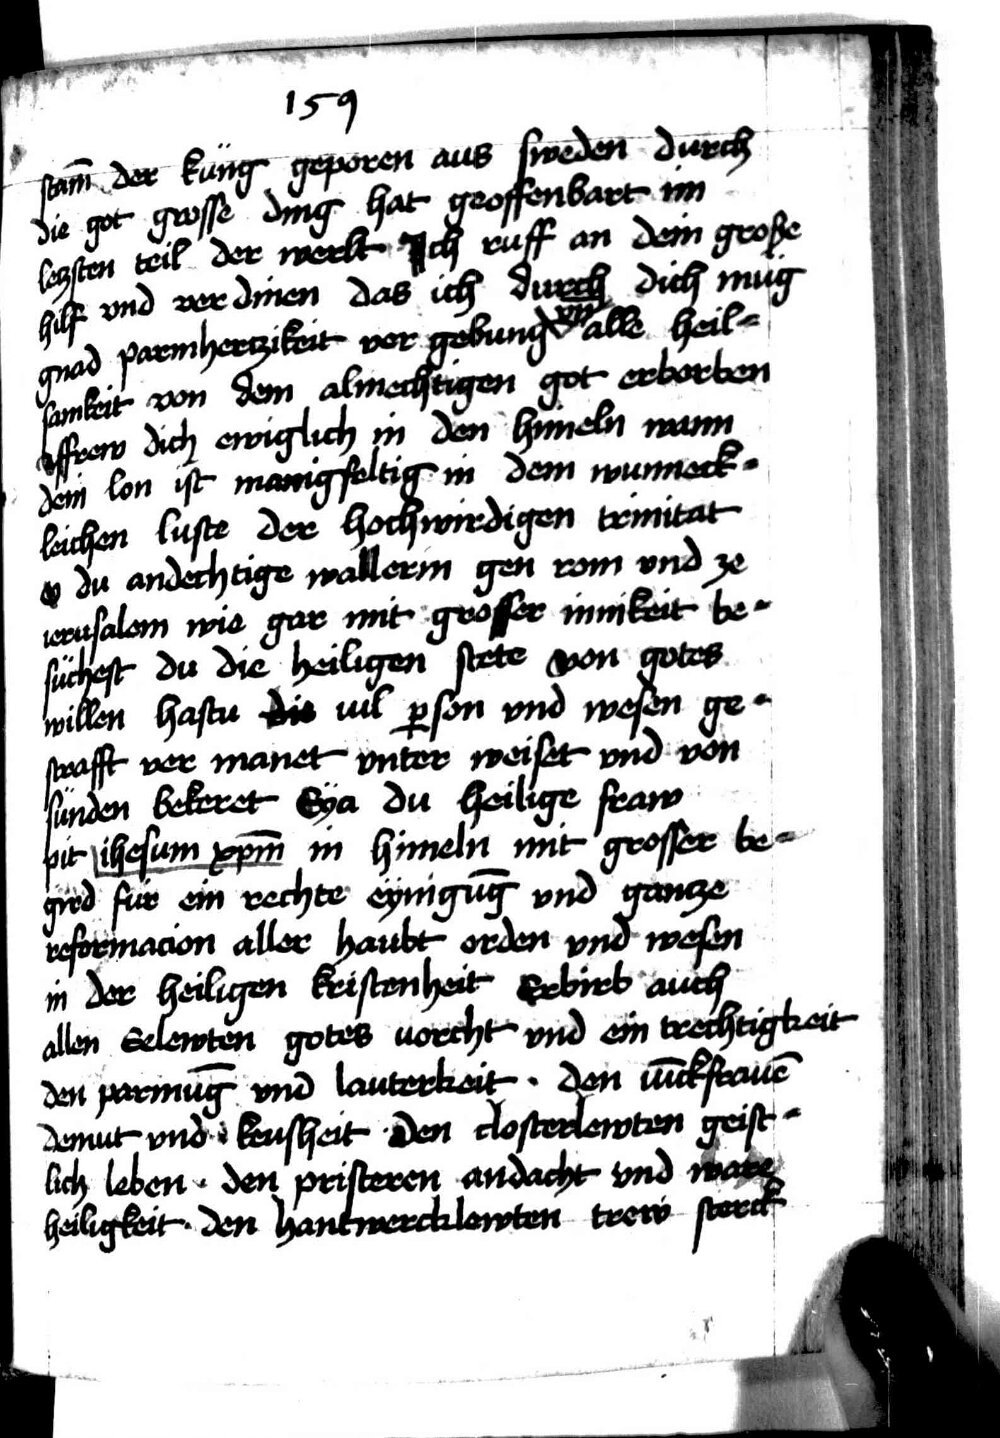 159
stam̄ der küng geporen aus sweden durch
die got grosse ding hat geoffenbart im
letzsten teil der werlt Ich ruff an dein große
hilf vnd verdinen das ich durch dich müg
gnad parmhertzikeit vergebung vn̄ alle heil-
samkeit von dem almechtigen got erborben
dich ewiglich in den himeln wann
dein lon ist manigfeltig in dem wunneck-
leichen luste der hochwirdigen trinitat
o du andechtige wallerin gen rom vnd ze
ierusalem wie gar mit grosser innikeit be-
süchest du die heiligen stete von gotes
willen hastu die uil ꝑson vnd wesen ge-
strafft vermanet vnterweiset vnd von
sünden bekeret Eÿa du heilige fraw
pit ihesum xp̄m in himeln mit grosser be-
gird für ein rechte eÿnigūg vnd gantze
reformacion aller haubt orden vnd wesen
in der heiligen kristenheit Erbirb auch
allen Eelewten gotes uorcht vnd ein trechtigkeit
den parmūg vnd lauterkeit · den iūckfrauē
demut vnd keusheit Den closterlewten geist-
lich leben · den pristeren andacht vnd ware
heiligkeit · den hantwercklewten trew sterck